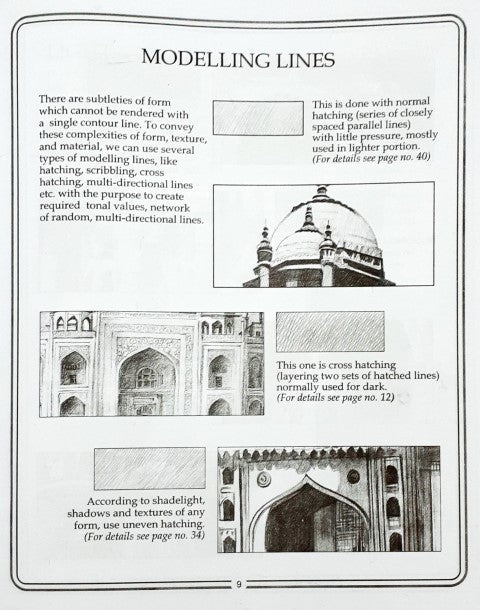 MODELLING LINES
There are subtleties of form
which cannot be rendered with
a single contour line. To convey
these complexities of form, texture,
and material, we can use several
types of modelling lines, like
hatching, scribbling, cross
hatching, multi-directional lines
etc. with the purpose to create
required tonal values, network
of random, multi-directional lines.
This is done with normal
hatching (series of closely
spaced parallel lines)
with little pressure, mostly
used in lighter portion.
(For details see page no. 40)
This one is cross hatching
(layering two sets of hatched lines)
normally used for dark.
(For details see page no. 12)
According to shadelight,
shadows and textures of any
form, use uneven hatching.
(For details see page no. 34)
9